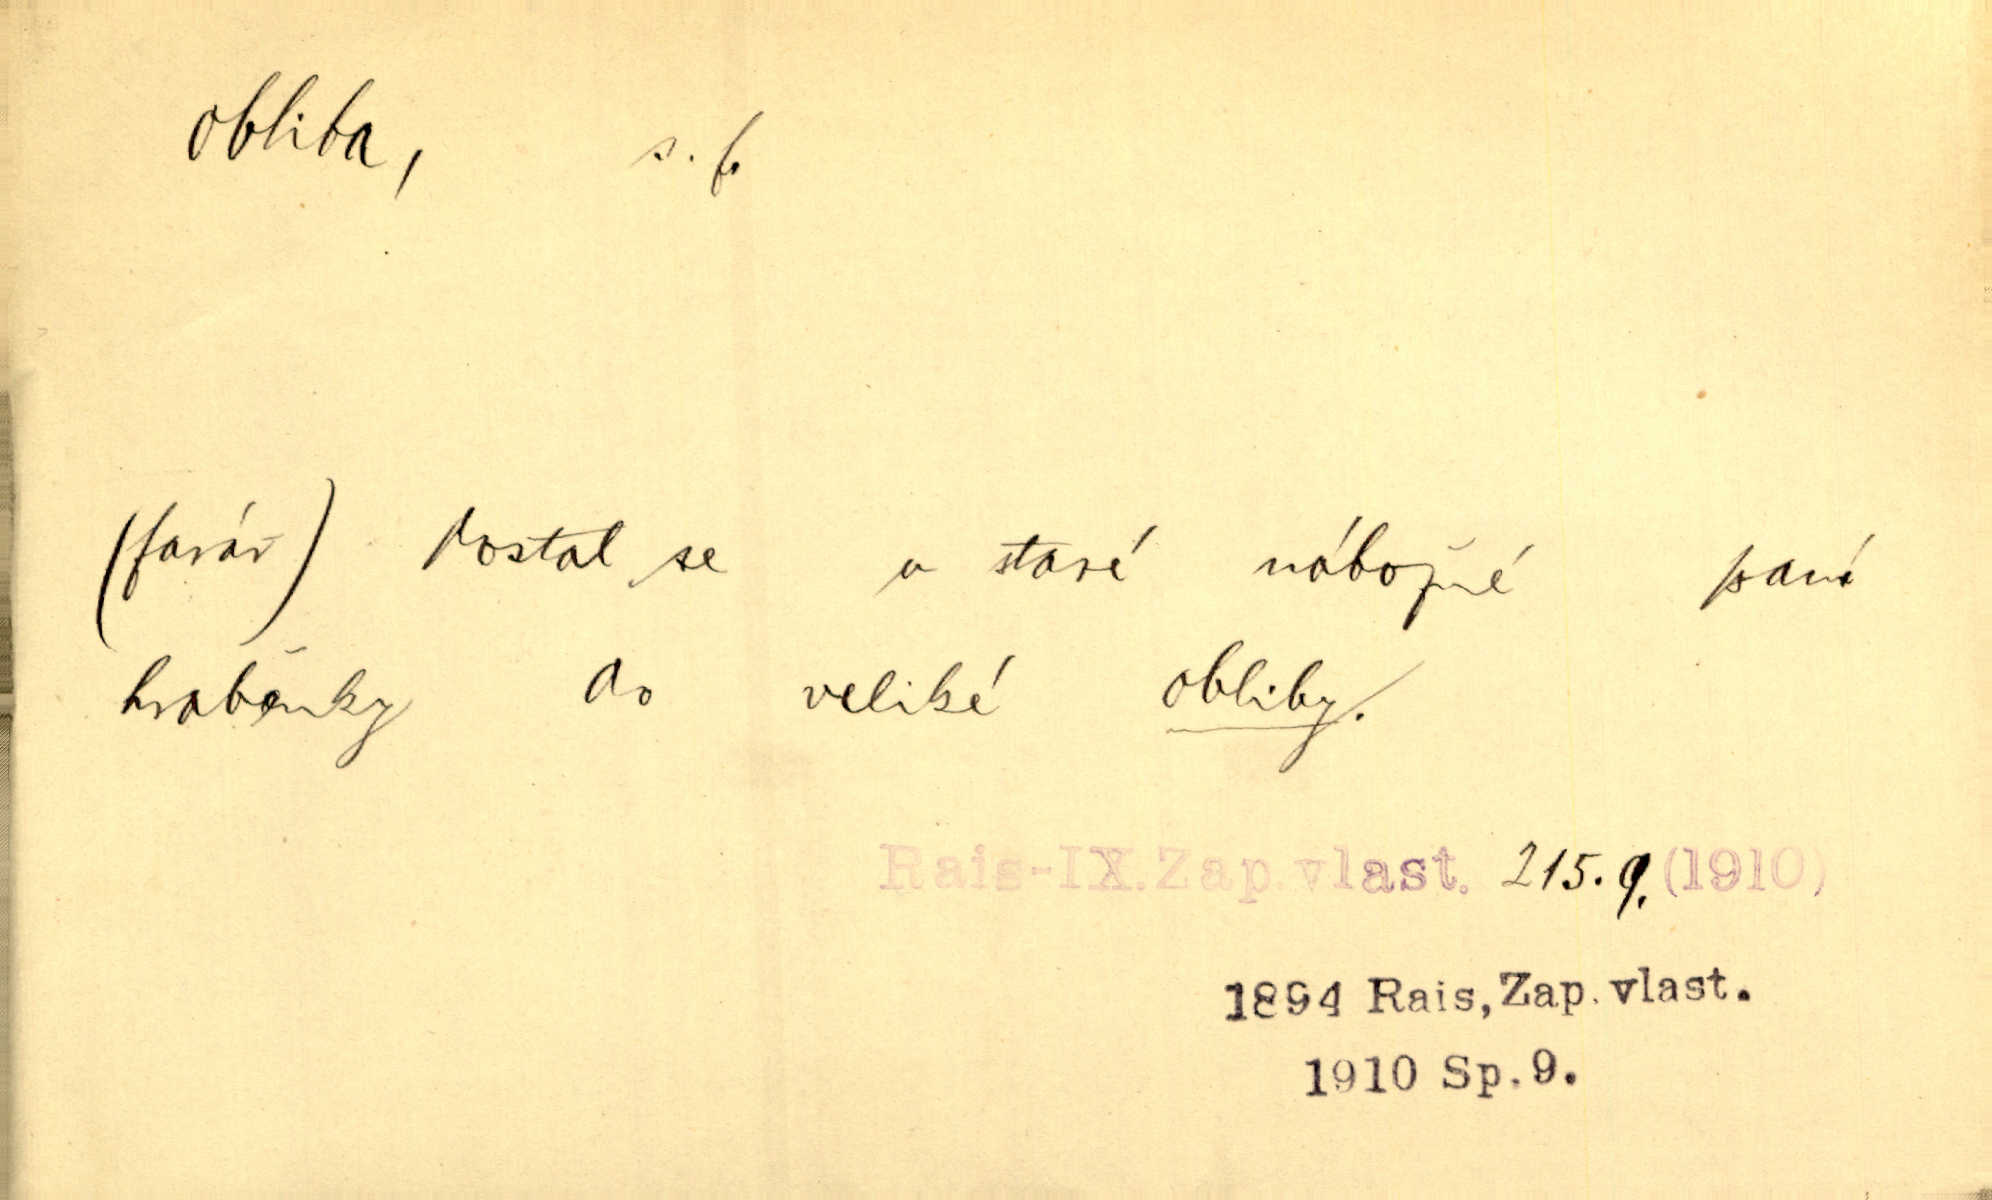 obliba, s. f.
(farář) dostal se u staré nábožné paní
hraběnky do veliké obliby.
Rais-IX. Zap. vlast. 215.9. (1910)
1894 Rais, Zap. vlast.
1910 Sp. 9.